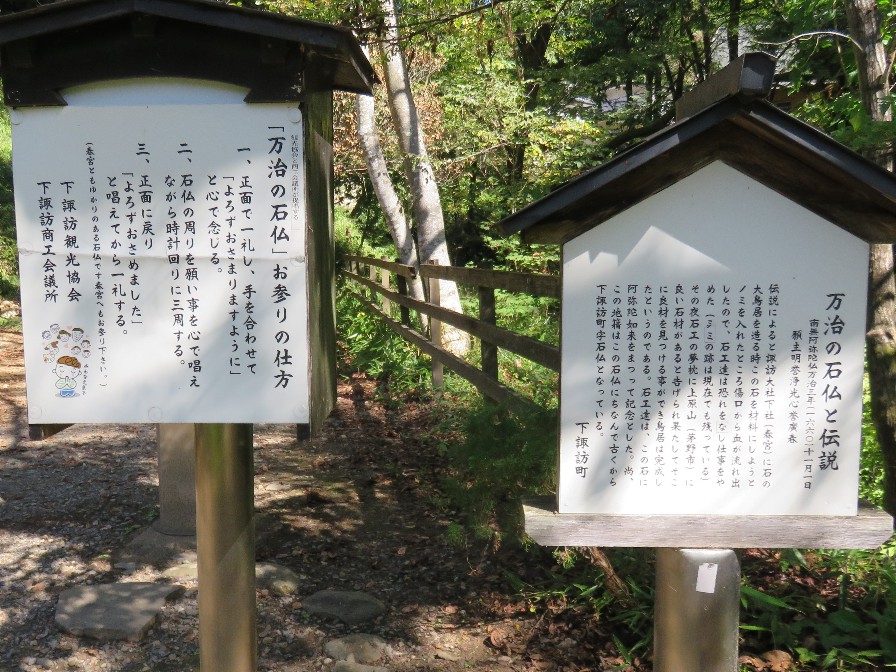 「万治の石仏」お参りの仕方
一、正面で一礼し、手を合わせて
「よろずおさまりますように」
と心で念じる。
二、石仏の周りを願い事を心で唱え
ながら時計回りに三周する。
三、正面に戻り
「よろずおさめました」
と唱えてから一礼する。
(春宮ともゆかりのある石仏です春宮へもお参り下さい。)
下諏訪観光協会
下諏訪商工会議所
万治の石仏と伝説
南無阿弥陀仏万治三年(一六六〇)十一月一日
願主明誉浄光心誉廣春
伝説によると諏訪大社下社(春宮)に石の
大鳥居を造る時この石を材料にしようと
ノミを入れたところ傷口から血が流れ出
したので、石工達は恐れをなし仕事をや
めた(ノミの跡は現在でも残っている)
その夜石工の夢枕に上原山(茅野市)に
良い石材があると告げられ果たしてそこ
に良材を見つける事ができ鳥居は完成し
たというのである。石工達は、この石に
阿弥陀如来をまつって記念とした。尚、
この地籍はこの石仏にちなんで古くから
下諏訪町字石仏となっている。
下諏訪町